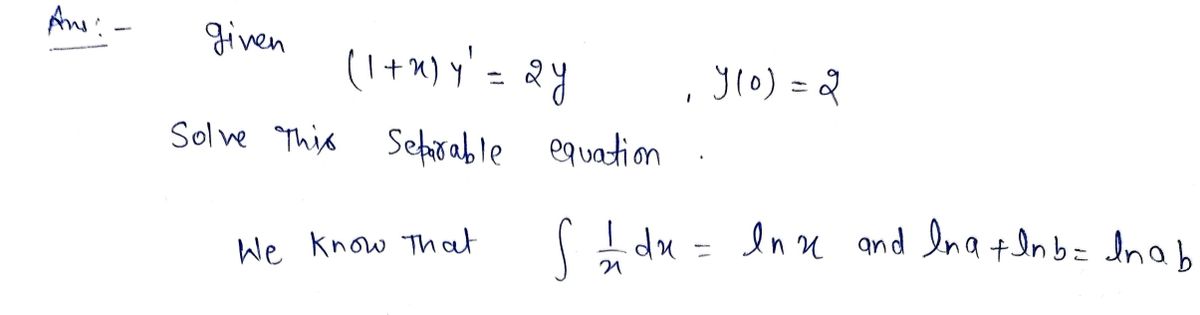 Ans:- given
(1+x) y' = 2y , y(0) = 2
Solve This Separable equation .
We Know That ∫ 1/x dx = ln x and ln a + ln b = ln ab